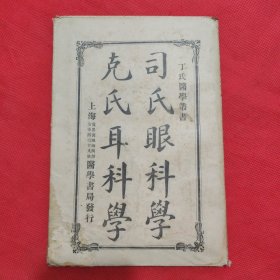 丁氏醫學叢書
司氏眼科學
克氏耳科學
上海
醫學書局發行